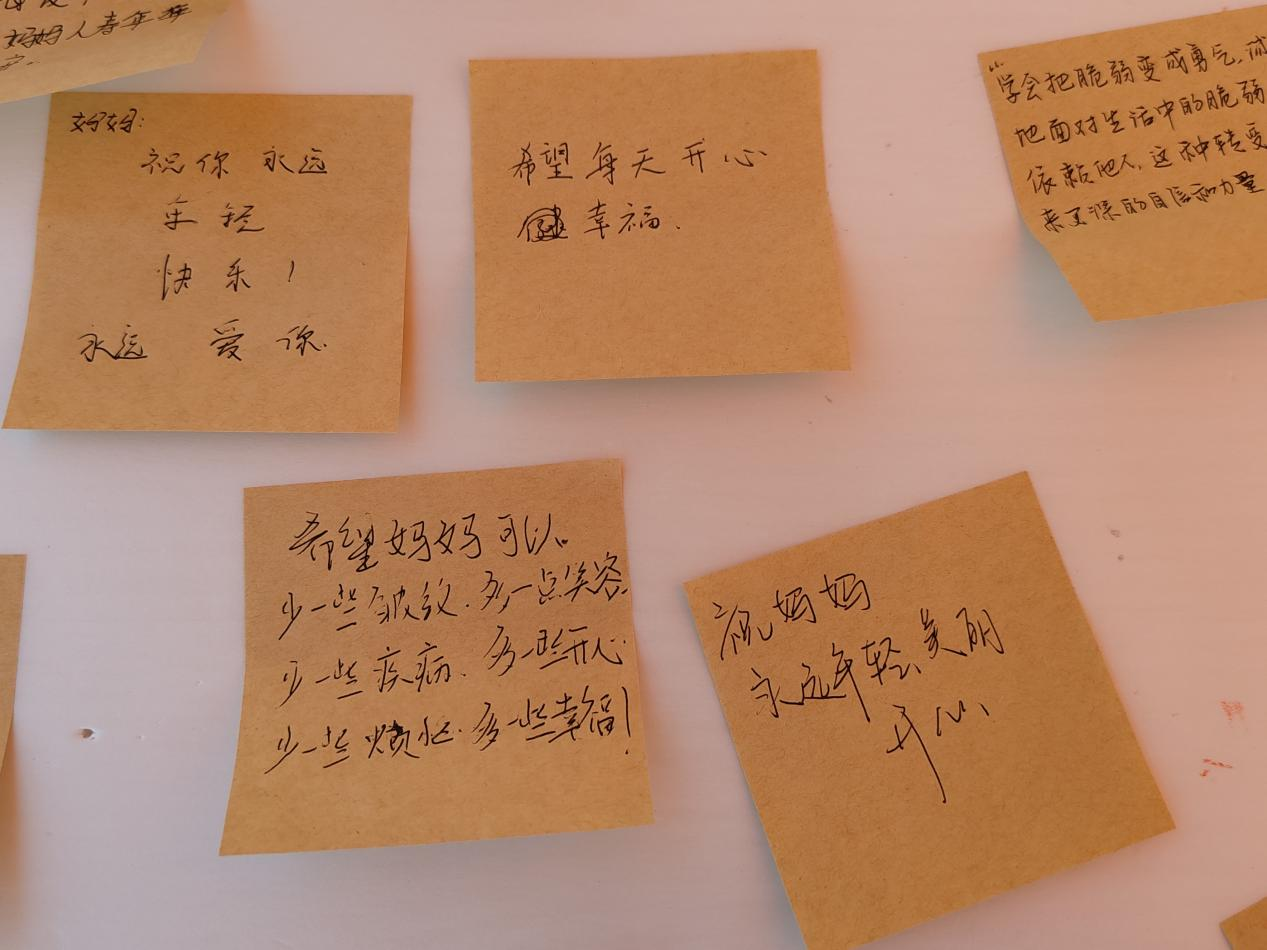 妈妈人青年华
妈妈:
祝你 永远
年轻
快乐!
永远 爱 你.
希望 每天 开心
幸福.
"学会把脆弱变成勇气,
地面对生活中的脆弱
依赖他人,这种转变
来更深的自信和力量
希望妈妈可以
少一些皱纹.多一点笑容.
少一些疾病.多一些开心.
少一些烦忧.多一些幸福!
祝妈妈
永远年轻、美丽
开心、